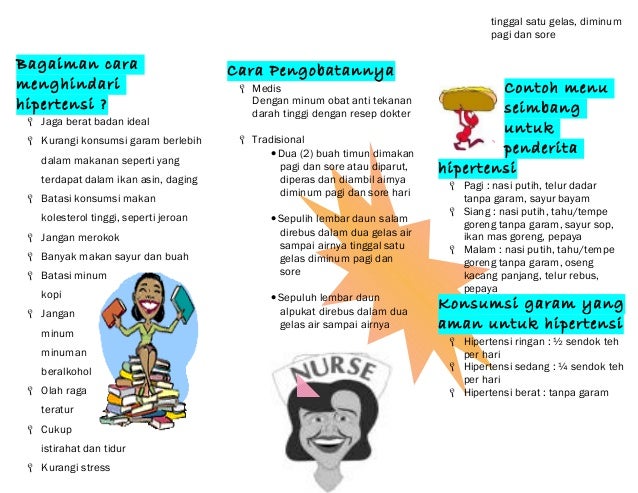 Bagaiman cara
menghindari
hipertensi ?
Jaga berat badan ideal
Kurangi konsumsi garam berlebih
dalam makanan seperti yang
terdapat dalam ikan asin, daging
Batasi konsumsi makan
kolesterol tinggi, seperti jeroan
Jangan merokok
Banyak makan sayur dan buah
Batasi minum
kopi
Jangan
minum
minuman
beralkohol
Olah raga
teratur
Cukup
istirahat dan tidur
Kurangi stress
Cara Pengobatannya
Medis
Dengan minum obat anti tekanan
darah tinggi dengan resep dokter
Tradisional
• Dua (2) buah timun dimakan
pagi dan sore atau diparut,
diperas dan diambil airnya
diminum pagi dan sore hari
• Sepulih lembar daun salam
direbus dalam dua gelas air
sampai airnya tinggal satu
gelas diminum pagi dan
sore
• Sepuluh lembar daun
alpukat direbus dalam dua
gelas air sampai airnya
NURSE
tinggal satu gelas, diminum
pagi dan sore
Contoh menu
seimbang
untuk
penderita
hipertensi
Pagi : nasi putih, telur dadar
tanpa garam, sayur bayam
Siang : nasi putih, tahu/tempe
goreng tanpa garam, sayur sop,
ikan mas goreng, pepaya
Malam : nasi putih, tahu/tempe
goreng tanpa garam, oseng
kacang panjang, telur rebus,
pepaya
Konsumsi garam yang
aman untuk hipertensi
Hipertensi ringan : ½ sendok teh
per hari
Hipertensi sedang : ¼ sendok teh
per hari
Hipertensi berat : tanpa garam